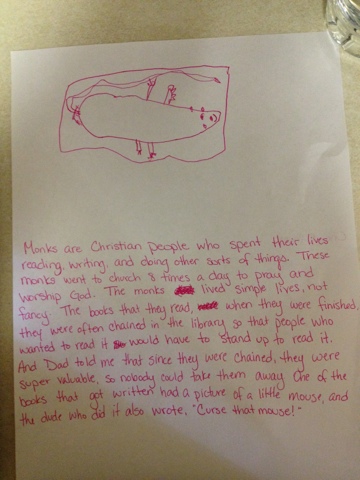 Monks are Christian people who spent their lives
reading, writing, and doing other sorts of things. These
monks went to church 8 times a day to pray and
worship God. The monks lived simple lives, not
fancy. The books that they read, when they were finished,
they were often chained in the library so that people who
wanted to read it would have to stand up to read it.
And Dad told me that since they were chained, they were
super valuable, so nobody could take them away. One of the
books that got written had a picture of a little mouse, and
the dude who did it also wrote, "Curse that mouse!"